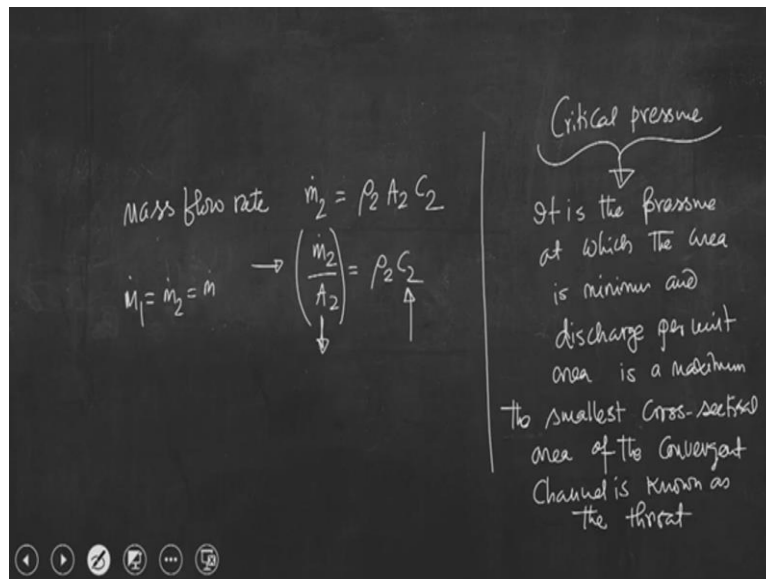 mass flow rate ṁ₂ = ρ₂ A₂ C₂
ṁ₁ = ṁ₂ = ṁ → (ṁ₂/A₂) = ρ₂ C₂
Critical pressure
It is the pressure
at which the area
is minimum and
discharge per unit
area is a maximum
the smallest cross-sectional
area of the convergent
channel is known as
the throat